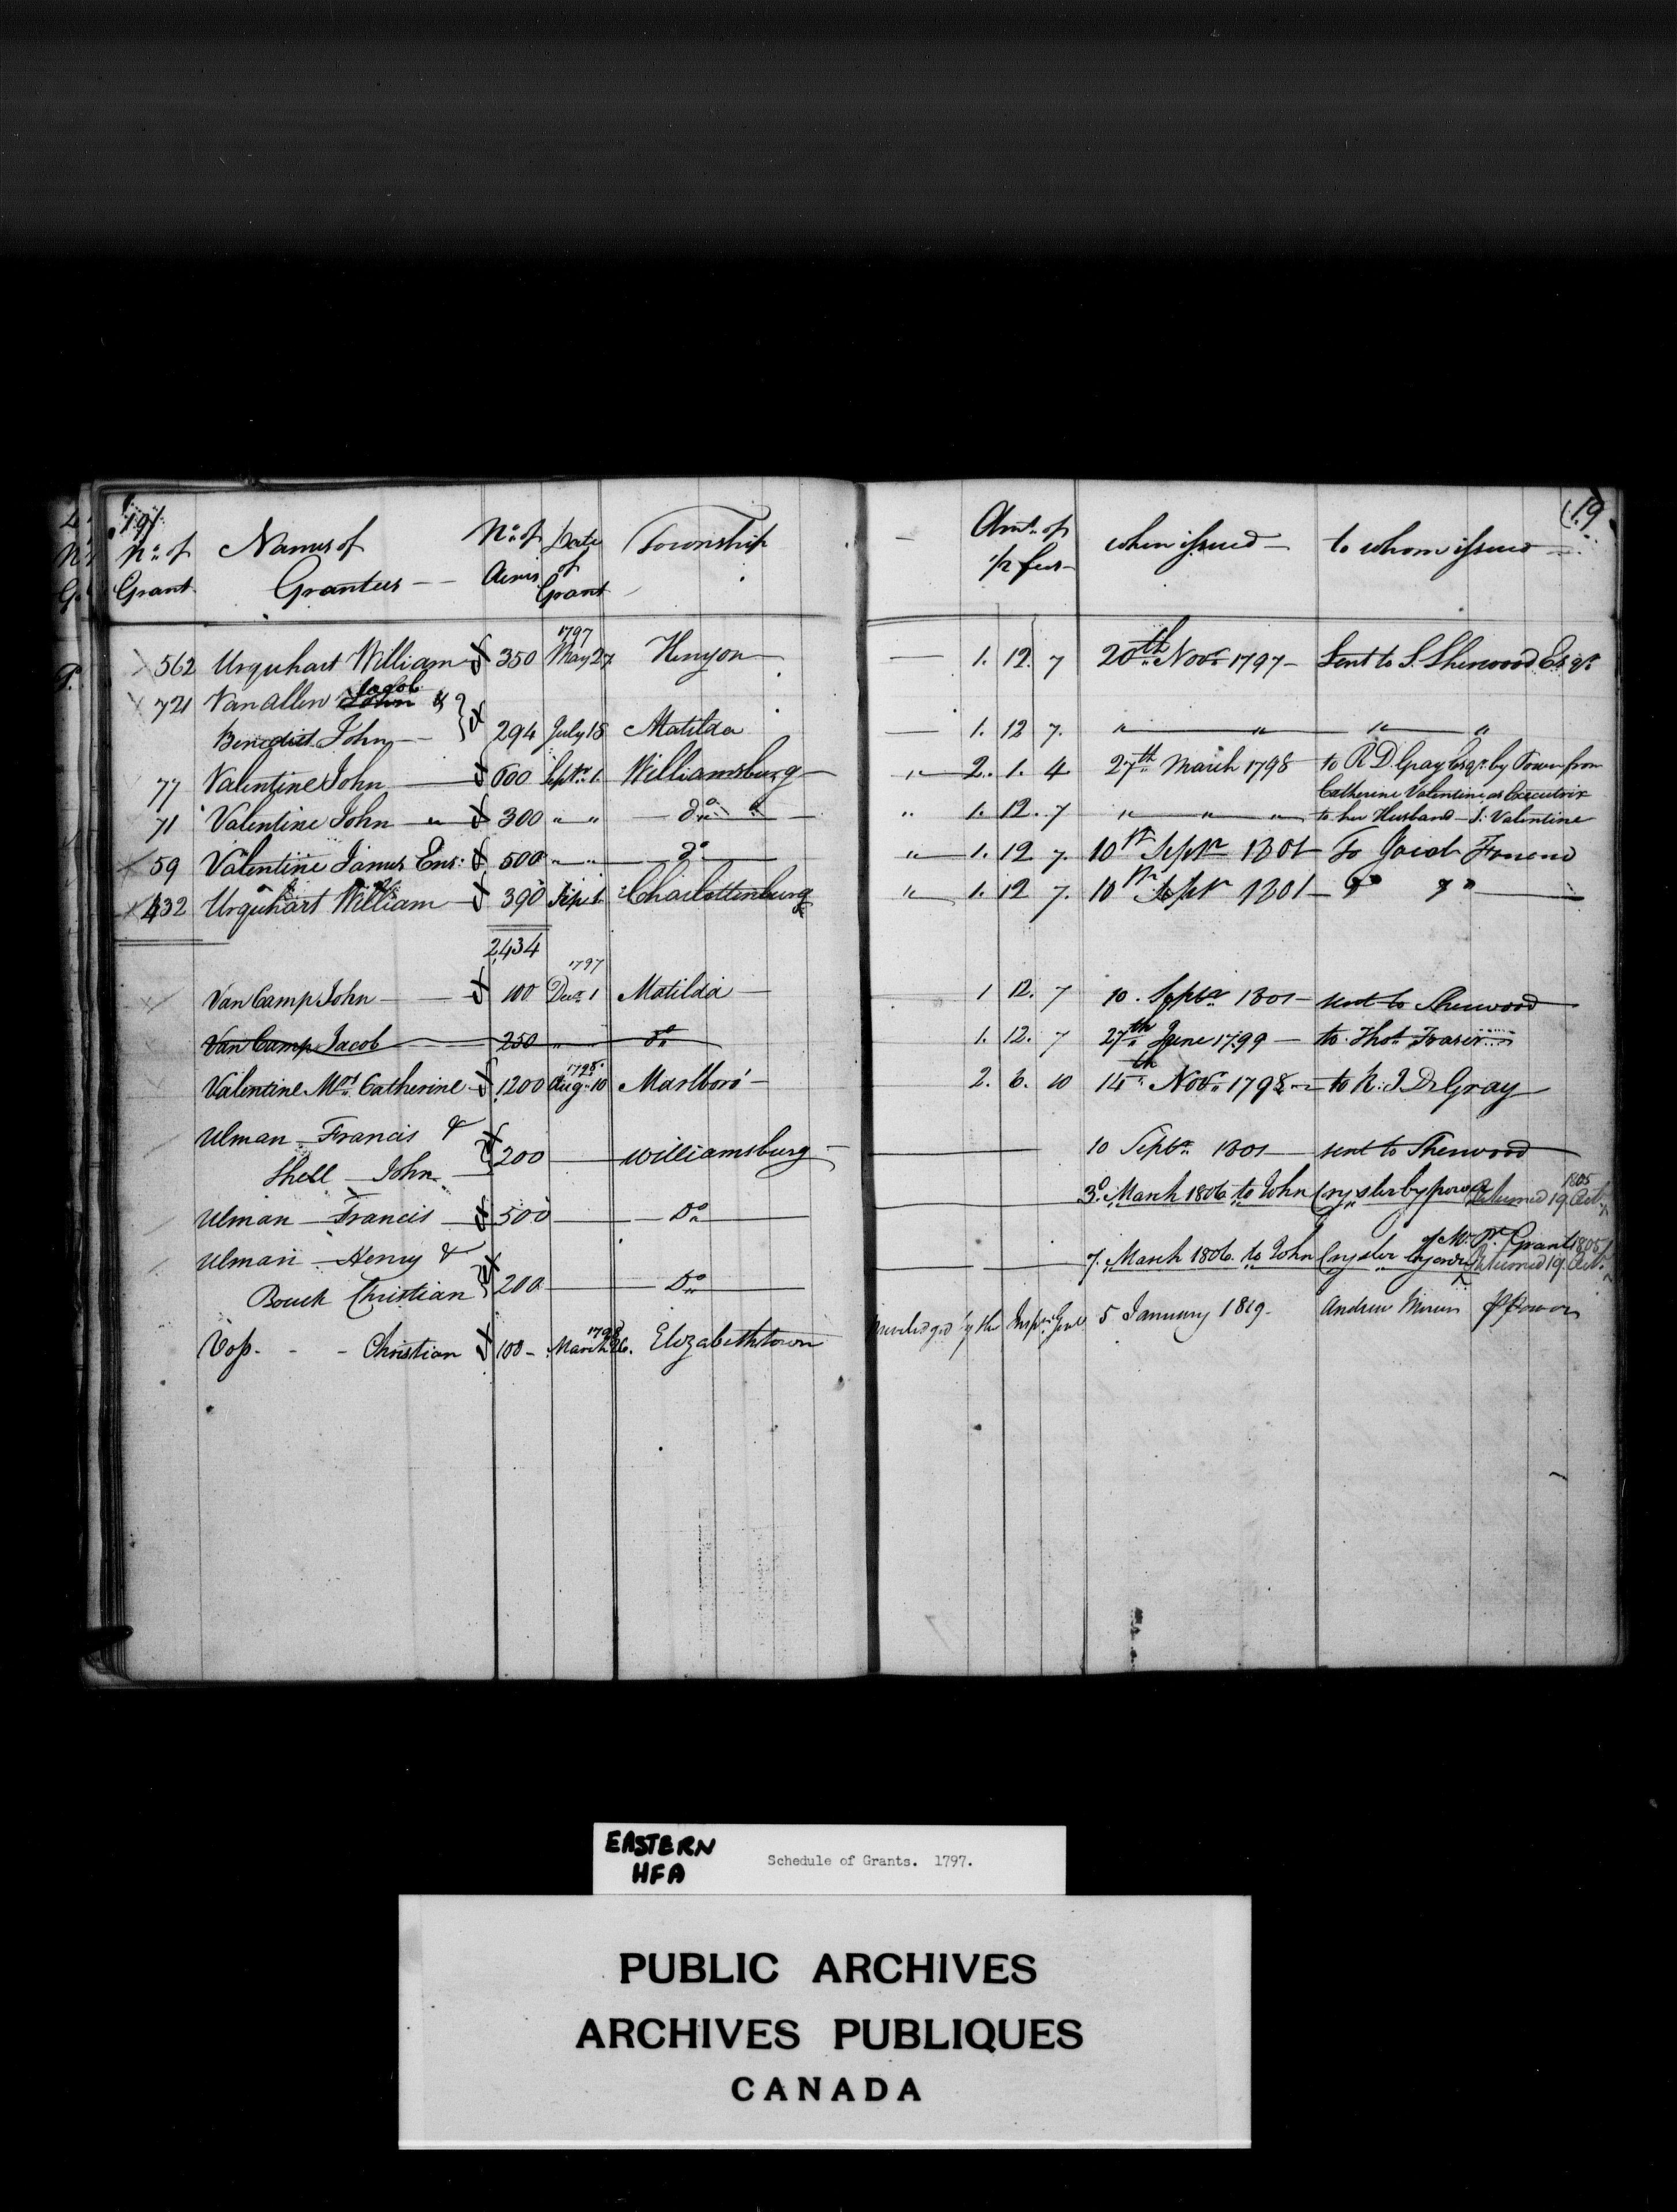 19
Nº of Grant
Names of Grantees
Nº of Acres
Date of Grant
Township
Amt. of ½ fees
when issued
to whom issued
19
562 Urquhart William 350 1797 May 27 Kenyon 1. 12. 7 20th Novr 1797 Sent to S. Sherwood Esqr
721 Van Allen John Jacob &
Benedict John 294 July 18 Matilda 1. 12 7. " " " "
77 Valentine John 600 Septr 1. Williamsburg " 2. 1. 4 27th March 1798 to R. D. Gray Esqr. by Power from
Catherine Valentine as Executrix
71 Valentine John " 300 " " do " 1. 12. 7 " " " to her Husband J. Valentine
59 Valentine James Ens: 500 " " do " 1. 12 7. 10 Septr 1801 To Jacob
432 Urquhart William 390 Sep. 1. Charlottenburg " 1. 12 7. 10 Septr 1801 Do Do
2,434
Van Camp John 100 1797 Decr 1 Matilda 1 12. 7 10. Septr 1801 sent to Sherwood
Van Camp Jacob 250 " " do 1. 12. 7 27th June 1799 to Thos. Fraser
Valentine Mrs. Catherine 1200 1798 Aug. 10 Marlboro' 2. 6. 10 14th Novr. 1798 to R. I. D. Gray
Ulman Francis &
Shell John 200 Williamsburg 10 Septr 1801 sent to Sherwood
Ulman Francis 500 Do 3d. March 1806 to John Crysler by power Returned 19 Oct. 1805
of Mr. Grant
Ulman Henry &
Bouck Christian 200 Do 7. March 1806. to John Crysler by order Returned 19. Oct. 1805
Voss - - Christian 100 March 26. Elizabethtown Priviledged by the Inspr. Genl. 5 January 1819. Andrew P Power
EASTERN
HFA
Schedule of Grants. 1797.
PUBLIC ARCHIVES
ARCHIVES PUBLIQUES
CANADA